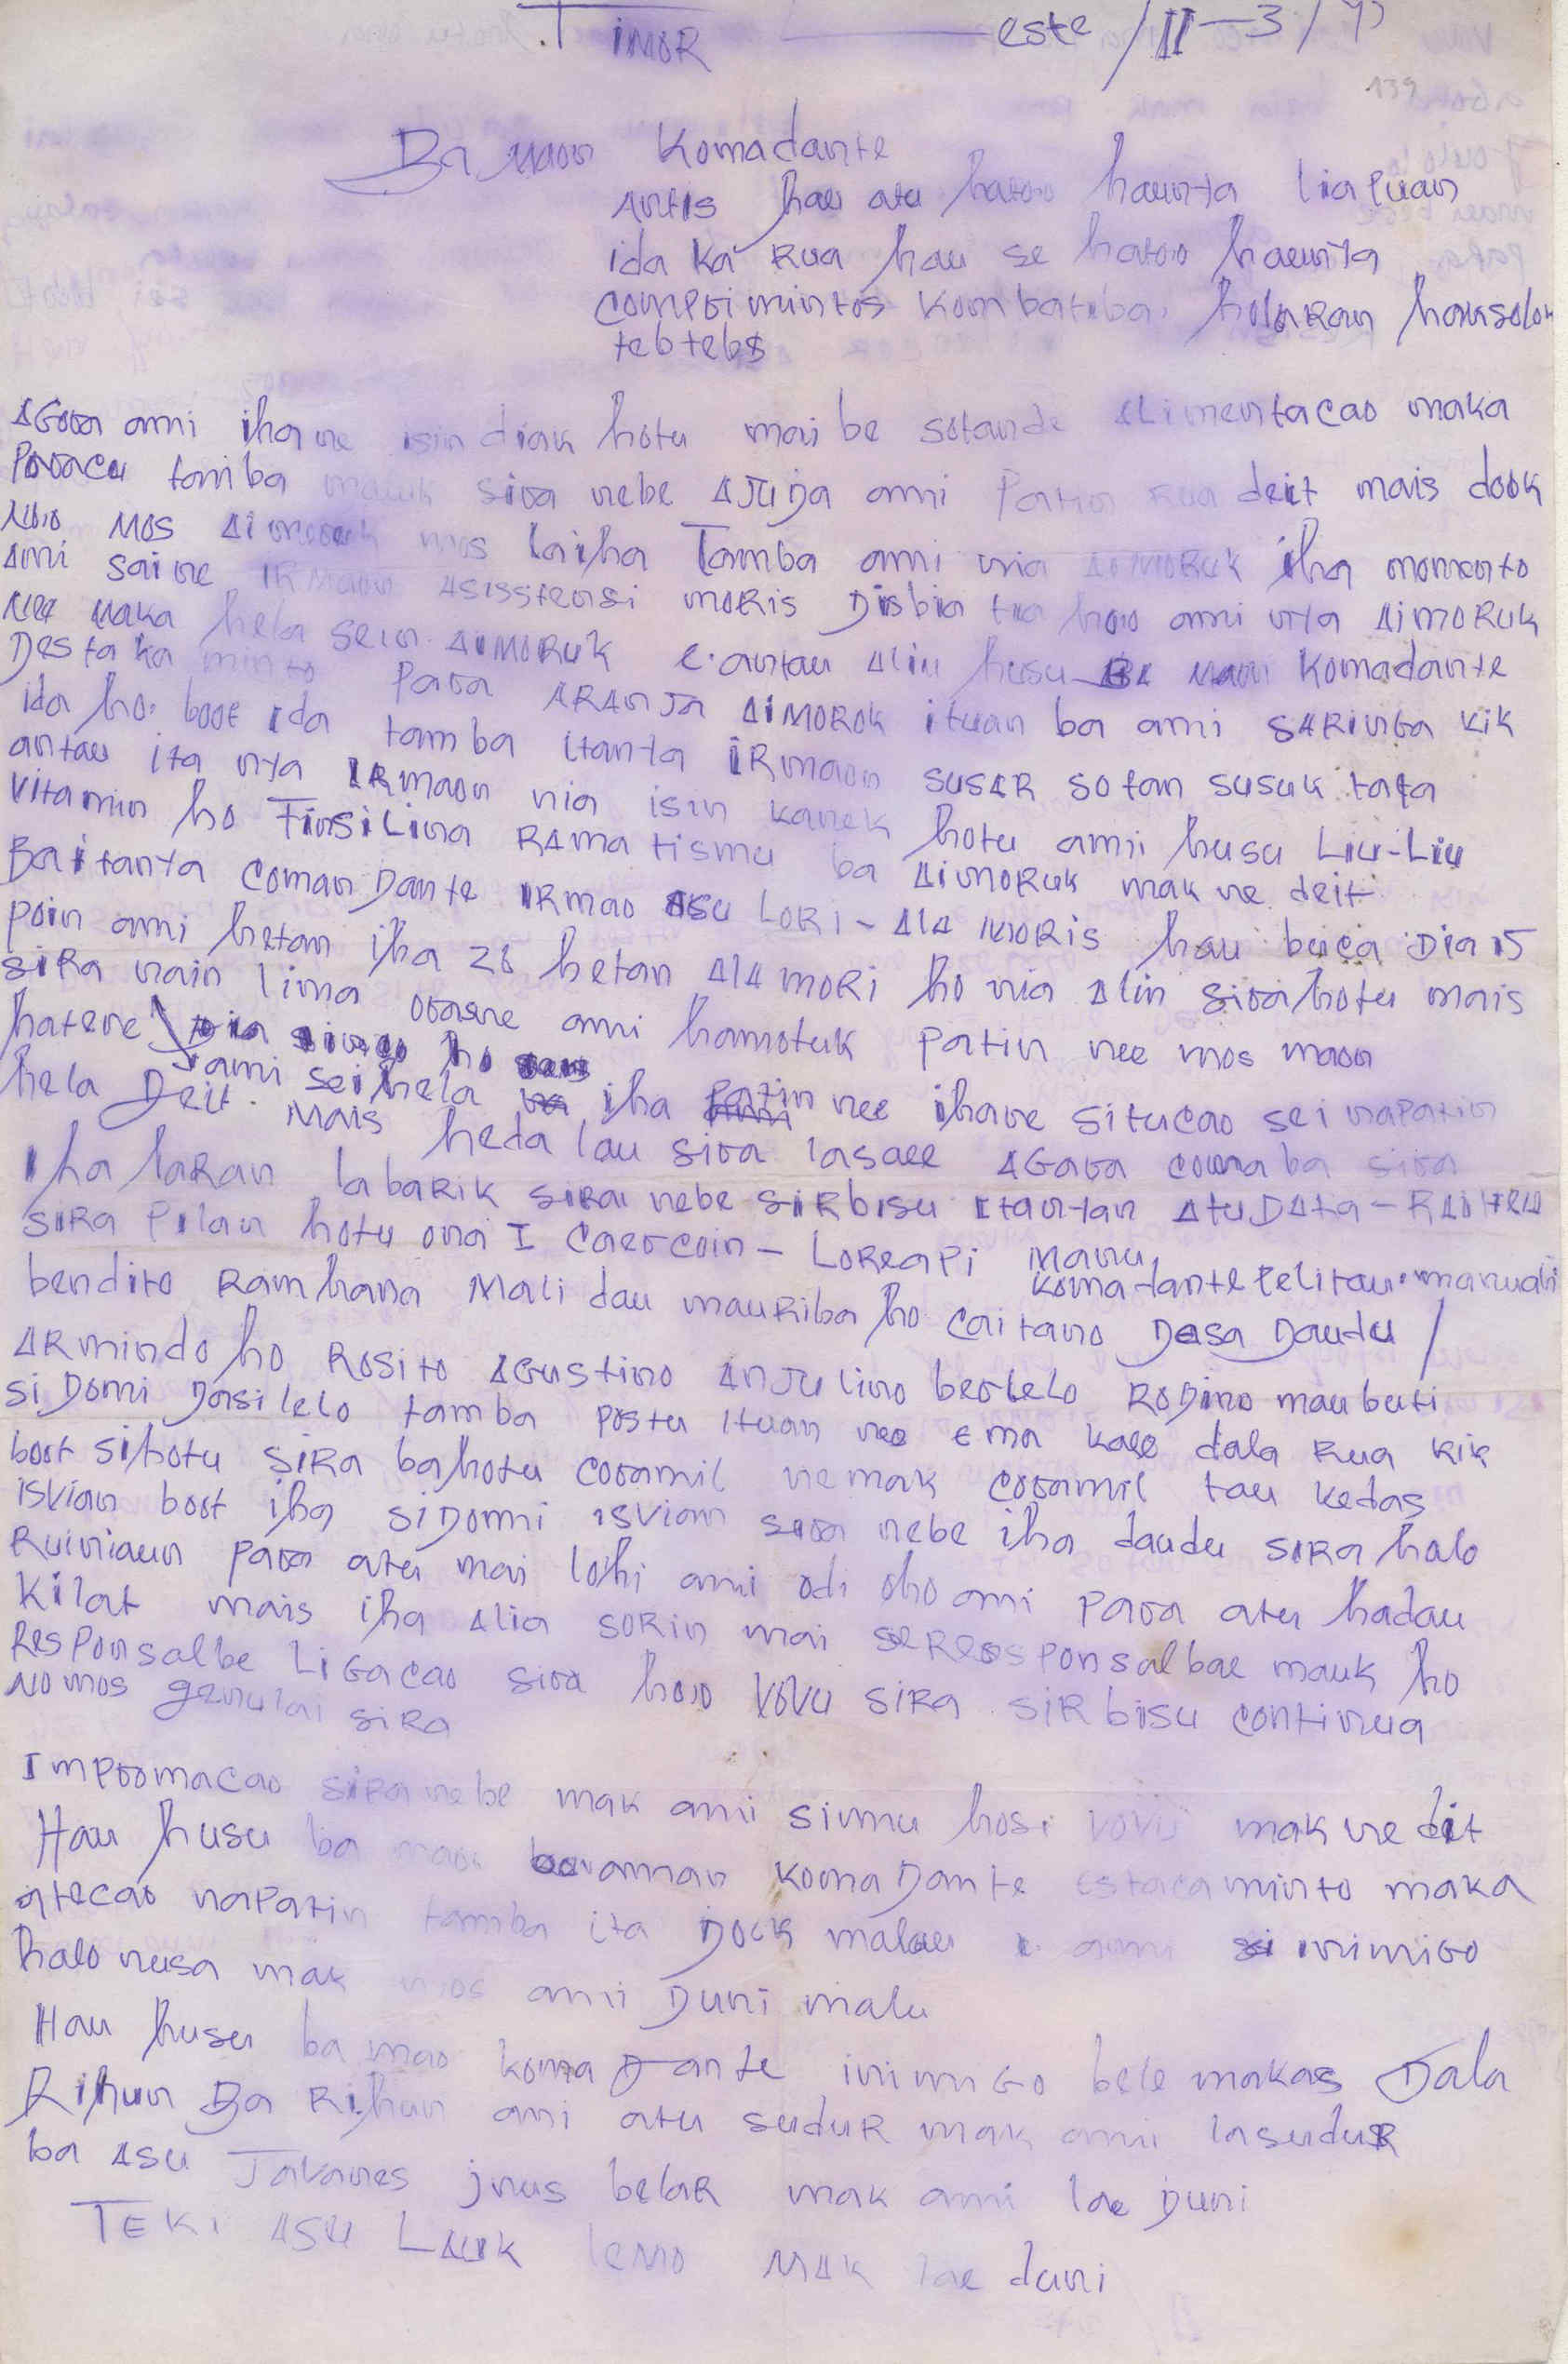 TIMOR este / II-3 / 9
139
Ba Maon Komadante
Antis hau atu hatoo haunta liapuan
ida ka rua hau se hatoo haunta
comprimintos kombatiba, holaran hausolok
tebtebs
Agora ami ihane isin diak hotu mai be sotande Alimentacao maka
Poracu tamba mauk sira nebe AJUDA ami Patin rua deit mais dook
noo mos Aimoruk mos laiha Tamba ami nia Aimoruk iha momento
Ami saine IRMaon Asisstensi moris Disbia tia hoo ami nya Aimoruk
nee maka hela sein Aimoruk e. antau Aliu husu Ba Maon Komadante
Destakaminto Para ARANJA Aimorok ituan ba ami SARINGA kik
ida ho boot ida tamba itanta IRmaon susar sotan susuk tata
antau ita nya IRmaon nia isin kanek hotu ami husu Liu-Liu
Vitamin ho Finsilina Ramatismu ba Aimoruk mak ne deit
Baitanya Comandante IRmao Asu Lori - Ala moris hau buca Dia 15
poin ami hetan iha 28 hetan Ala mori ho nia Alin sirahotu mais
sira nain lima orasne ami hamotuk patin nee mos maon
hatene ami seihela iha Patin nee ihane situcao sei napatin
hela Deit. Mais heda lau sira lasaee Agara coma ba sira
Iha laran labarik sirai nebe sirbisu itantan Atu Data - Raihela
sira Pilan hotu ona I Caercoin - Loreapi Manu
Komadante Pelitau marunabi
bendito Ramhana Mali dau mauriba ho Caitano Dasa Daudu /
Armindo ho Rosito Agustino Anjulino bertelo Rodino maubuti
si Domi Dasilelo tamba postu ituan nee ema kaee dala rua kik
boot sihotu sira bahotu coramil nemak coramil tau kedas
isvian boot iha siDomi isvian sira nebe iha daudu sira halo
Ruiniaun para atu mai lohi ami odi oho ami para atu hadau
Kilat mais iha Alia sorin mai se Reosponsalbae mauk ho
Responsalbe Ligacao sira hoo Vovu sira sirbisu continua
no mos genulai sira
Impromacao sira nebe mak ami simu hosi Vovu mak ne deit
Hau husu ba maon aman KomaDante estacaminto maka
atecao napatin tamba ita Dock malau i ami inimigo
halo nusa mak mos ami Duni malu
Hau husu ba mao komaDante inimugo bele makas Dala
Rihun Ba Rihun ami atu sudur mak ami lasudur
ba Asu Javanes jnus belar mak ami lae Duni
TEKI ASU LAUK lemo MAK lae duni